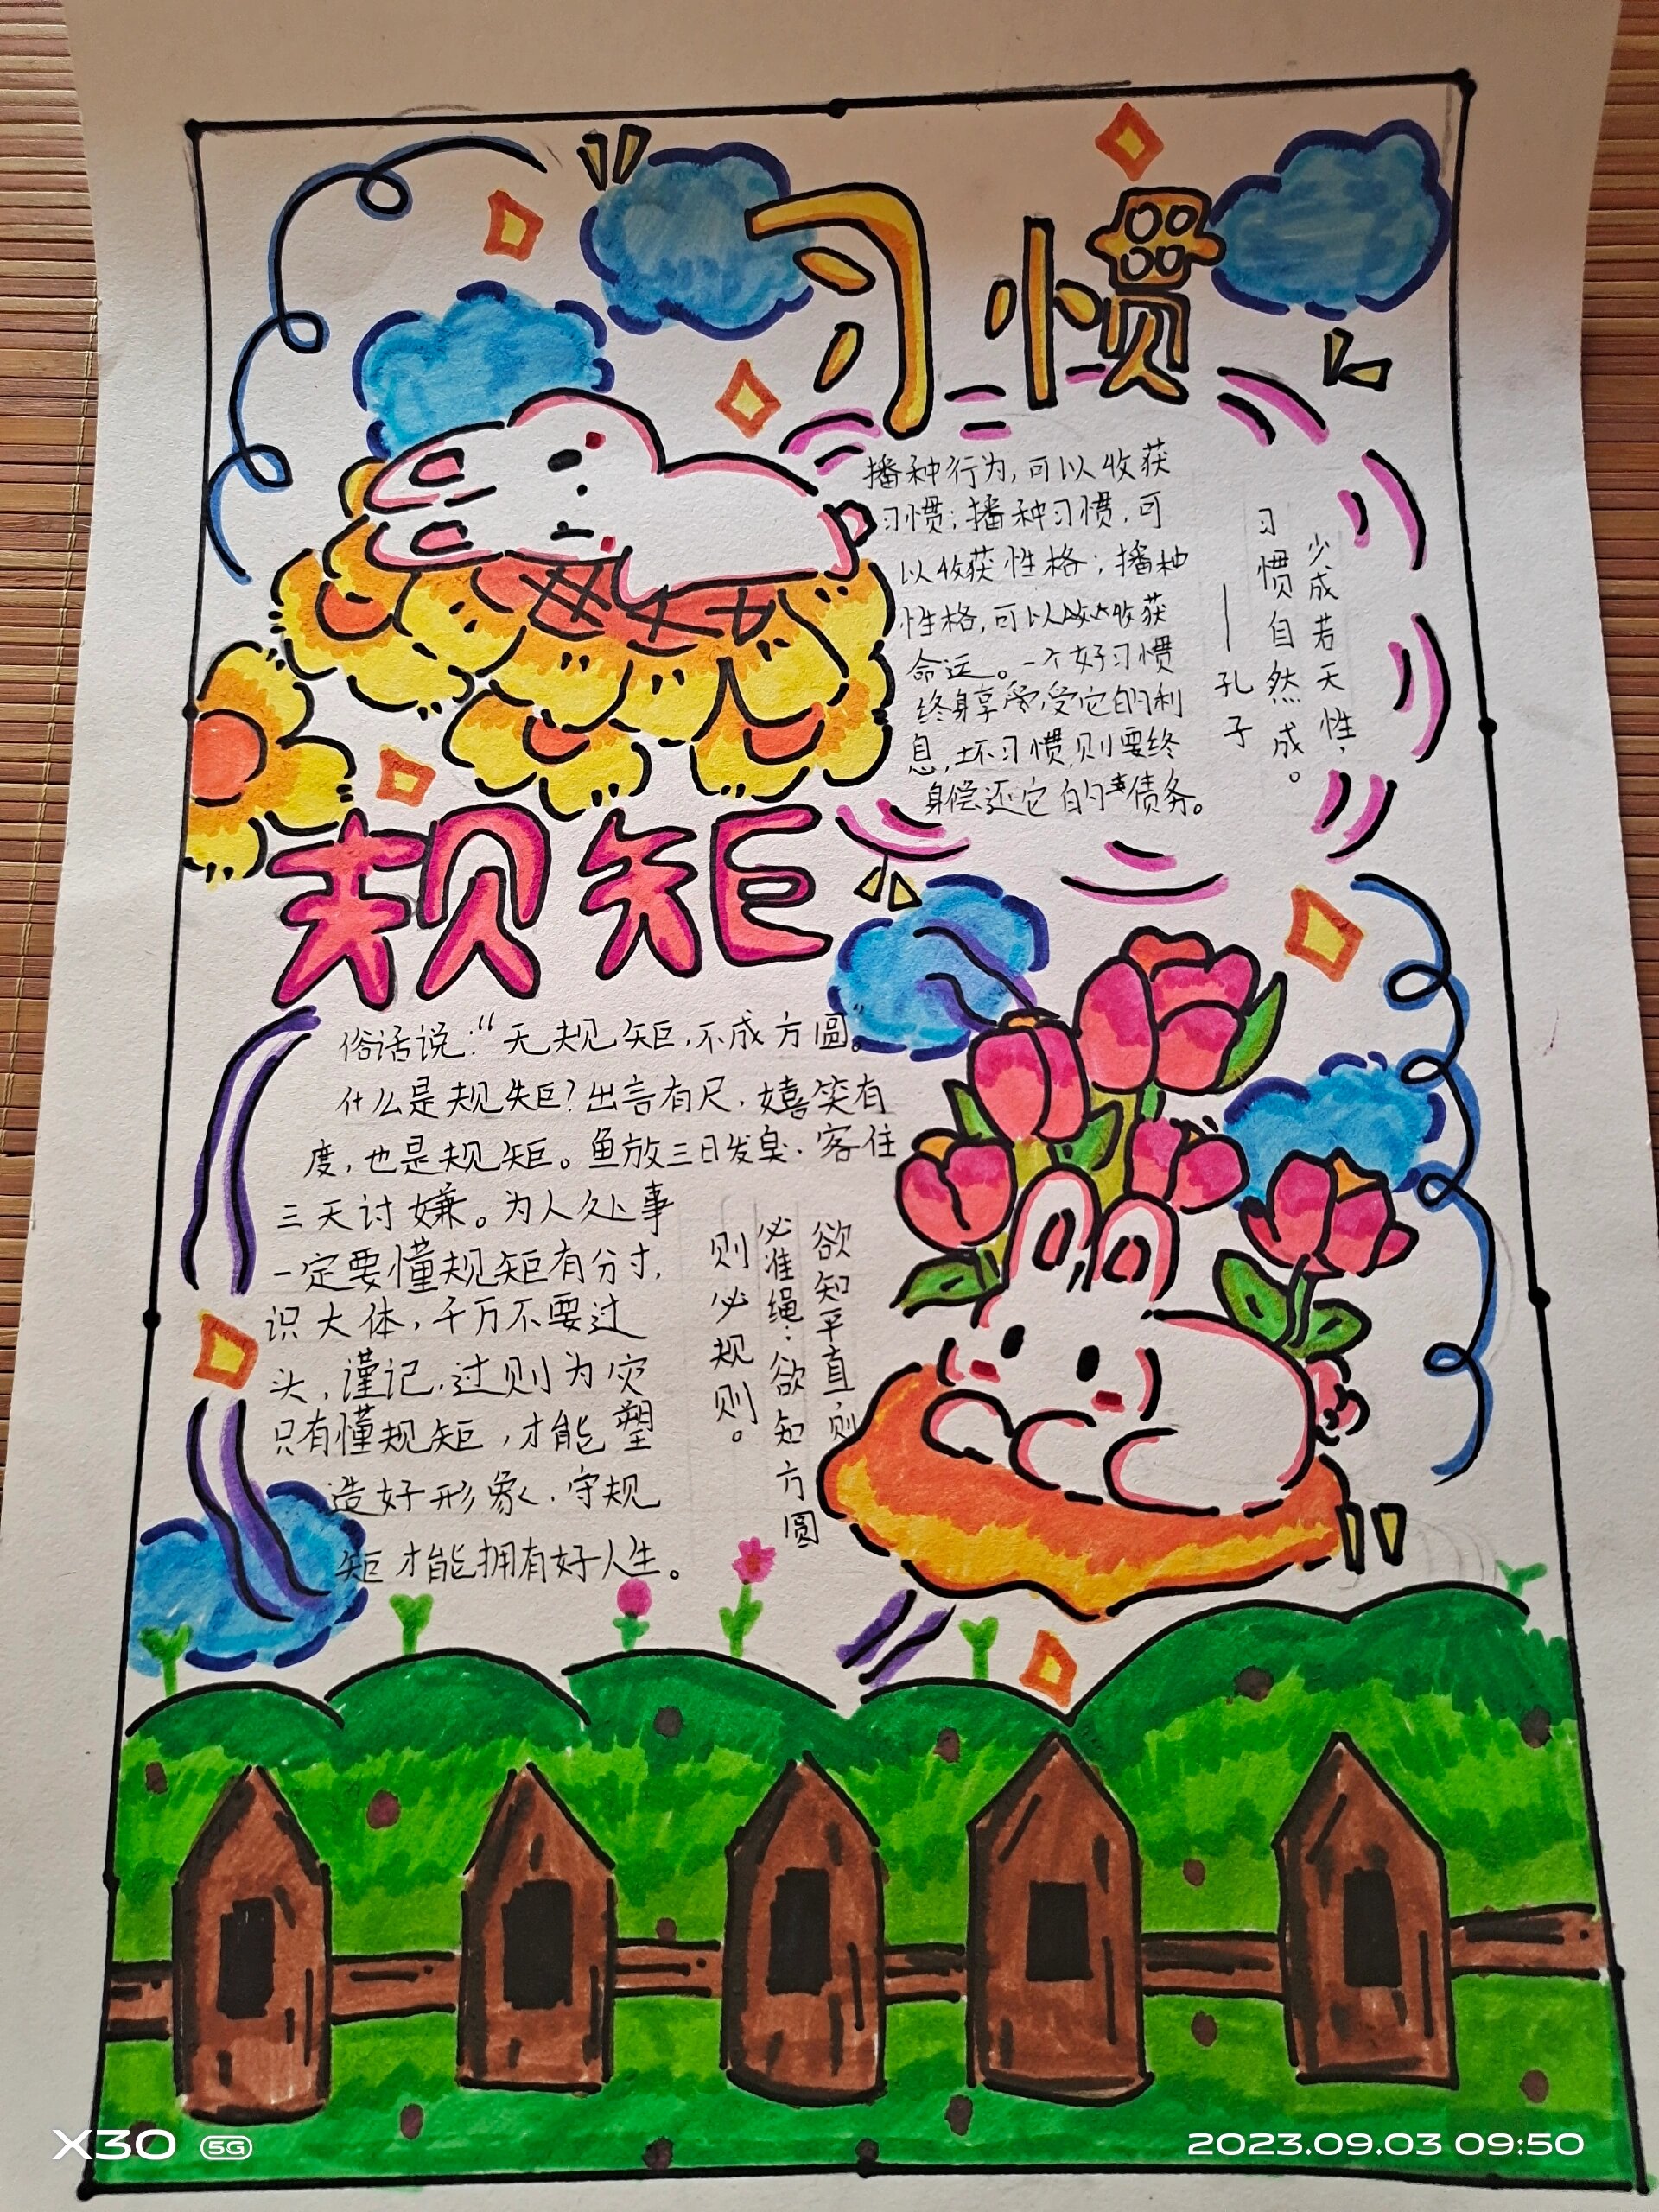 习惯
播种行为,可以收获
习惯;播种习惯,可
以收获性格;播种
性格,可以收获
命运。一个好习惯
终身享受它的利
息,坏习惯,则要终
身偿还它的债务。
少成若天性,
习惯自然成。
——孔子
规矩
俗话说:“无规矩,不成方圆。”
什么是规矩?出言有尺,嬉笑有
度,也是规矩。鱼放三日发臭,客住
三天讨嫌。为人处事
一定要懂规矩有分寸,
识大体,千万不要过
头,谨记,过则为灾
只有懂规矩,才能塑
造好形象,守规
矩才能拥有好人生。
欲知平直,则
必准绳;欲知方圆
则必规则。
X30 5G
2023.09.03 09:50